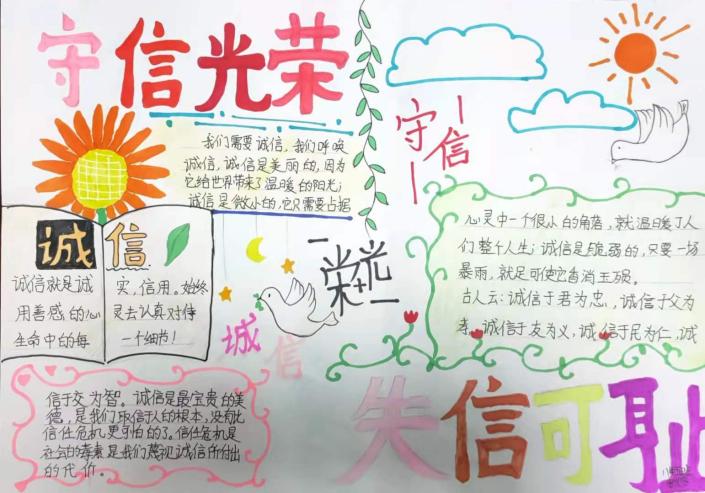 守信光荣
我们需要诚信，我们呼唤
诚信，诚信是美丽的，因为
它给世界带来了温暖的阳光；
诚信是微小的，它只需要占据
守信
心灵中一个很小的角落，就温暖了人
们整个人生；诚信是脆弱的，只要一场
暴雨，就足可使它自消玉殒。
古人云：诚信于君为忠，诚信于父为
孝，诚信于友为义，诚信于民为仁，诚
诚信
诚信就是诚
用善感的心
生命中的每
实，信用。始终
灵去认真对待
一个细节！
光荣
诚信
信于交为智。诚信是最宝贵的美
德，是我们取信于人的根本，没有比
信任危机更可怕的了。信任危机是
是我们蔑视诚信所付出
的代价。
失信可耻